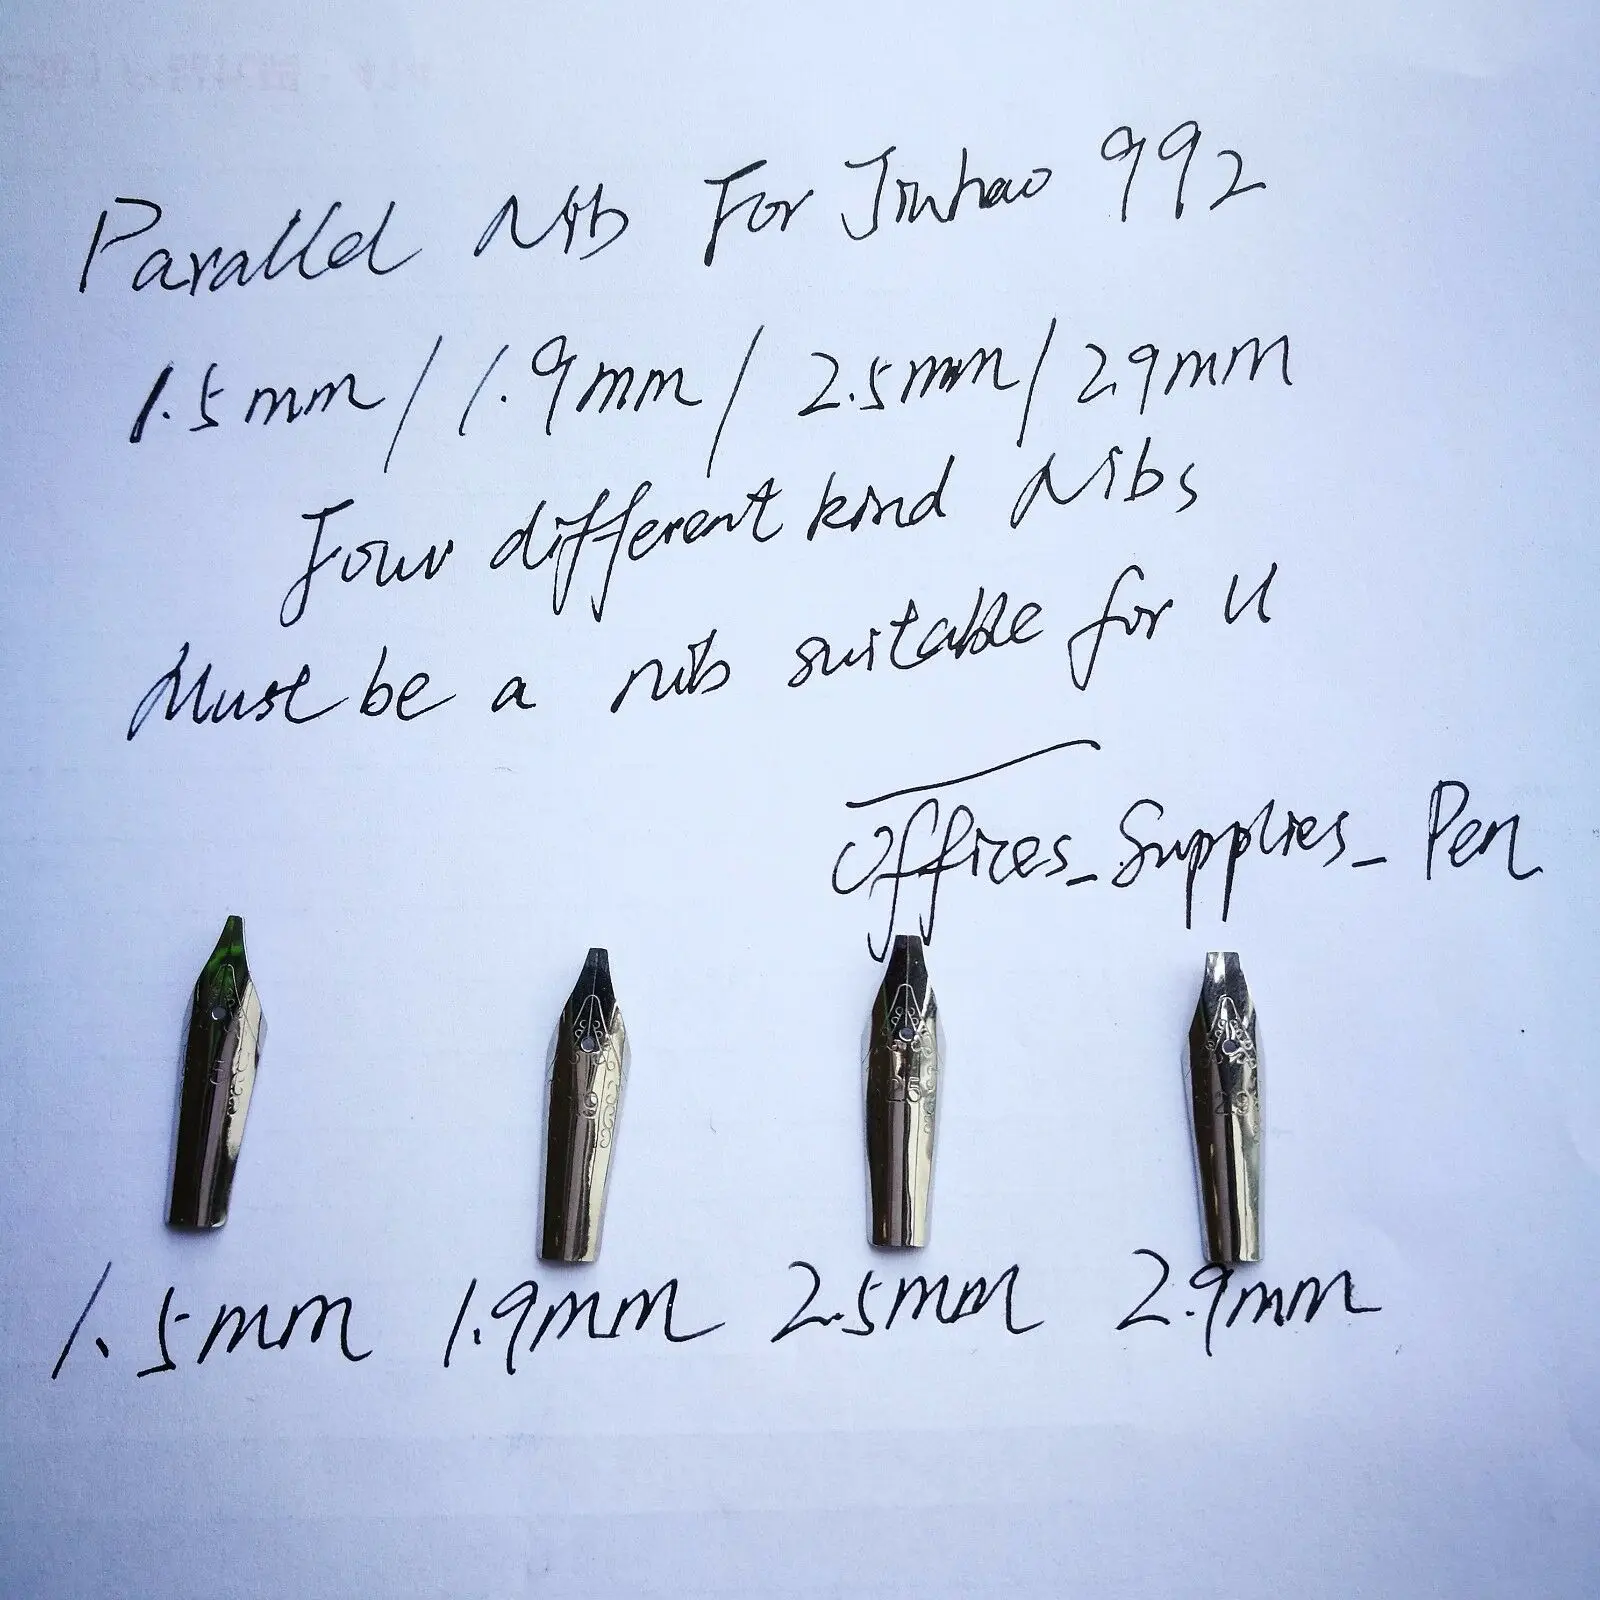 Parallel Nib For Jinhao 992
1.5mm / 1.9mm / 2.5mm / 2.9mm
Four different kind Nibs
Must be a nib suitable for U
Offices_Supplies_Pen
25
29
1.5mm 1.9mm 2.5mm 2.9mm